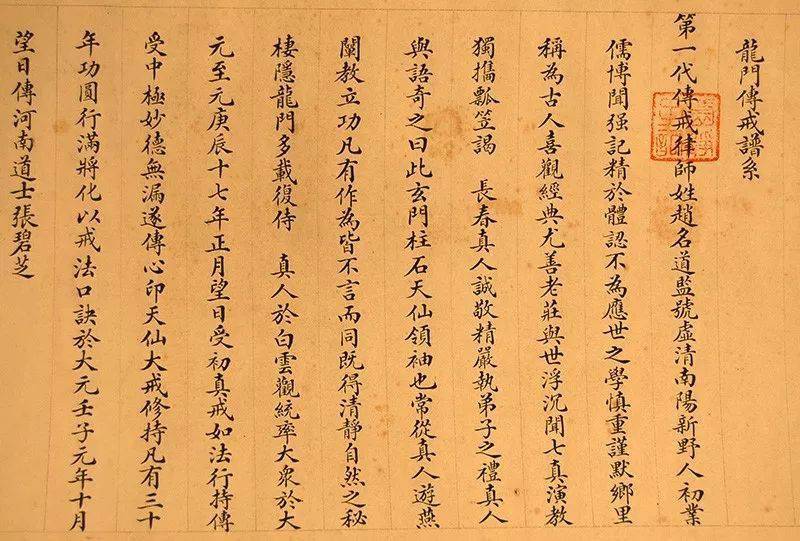 龍門傳戒譜系
第一代傳戒律師姓趙名道監號虛清南陽新野人初業
儒博聞强記精於體認不為應世之學慎重謹默鄉里
稱為古人喜觀經典尤善老莊與世浮沉聞七真演教
獨攜瓢笠謁 長春真人誠敬精嚴執弟子之禮真人
與語奇之曰此玄門柱石天仙領袖也常從真人遊燕
闡教立功凡有作為皆不言而同既得清静自然之秘
棲隱龍門多載復侍 真人於白雲觀統率大衆於大
元至元庚辰十七年正月望日受初真戒如法行持傳
受中極妙德無漏遂傳心印天仙大戒修持凡有三十
年功圓行滿將化以戒法口訣於大元壬子元年十月
望日傳河南道士張碧芝